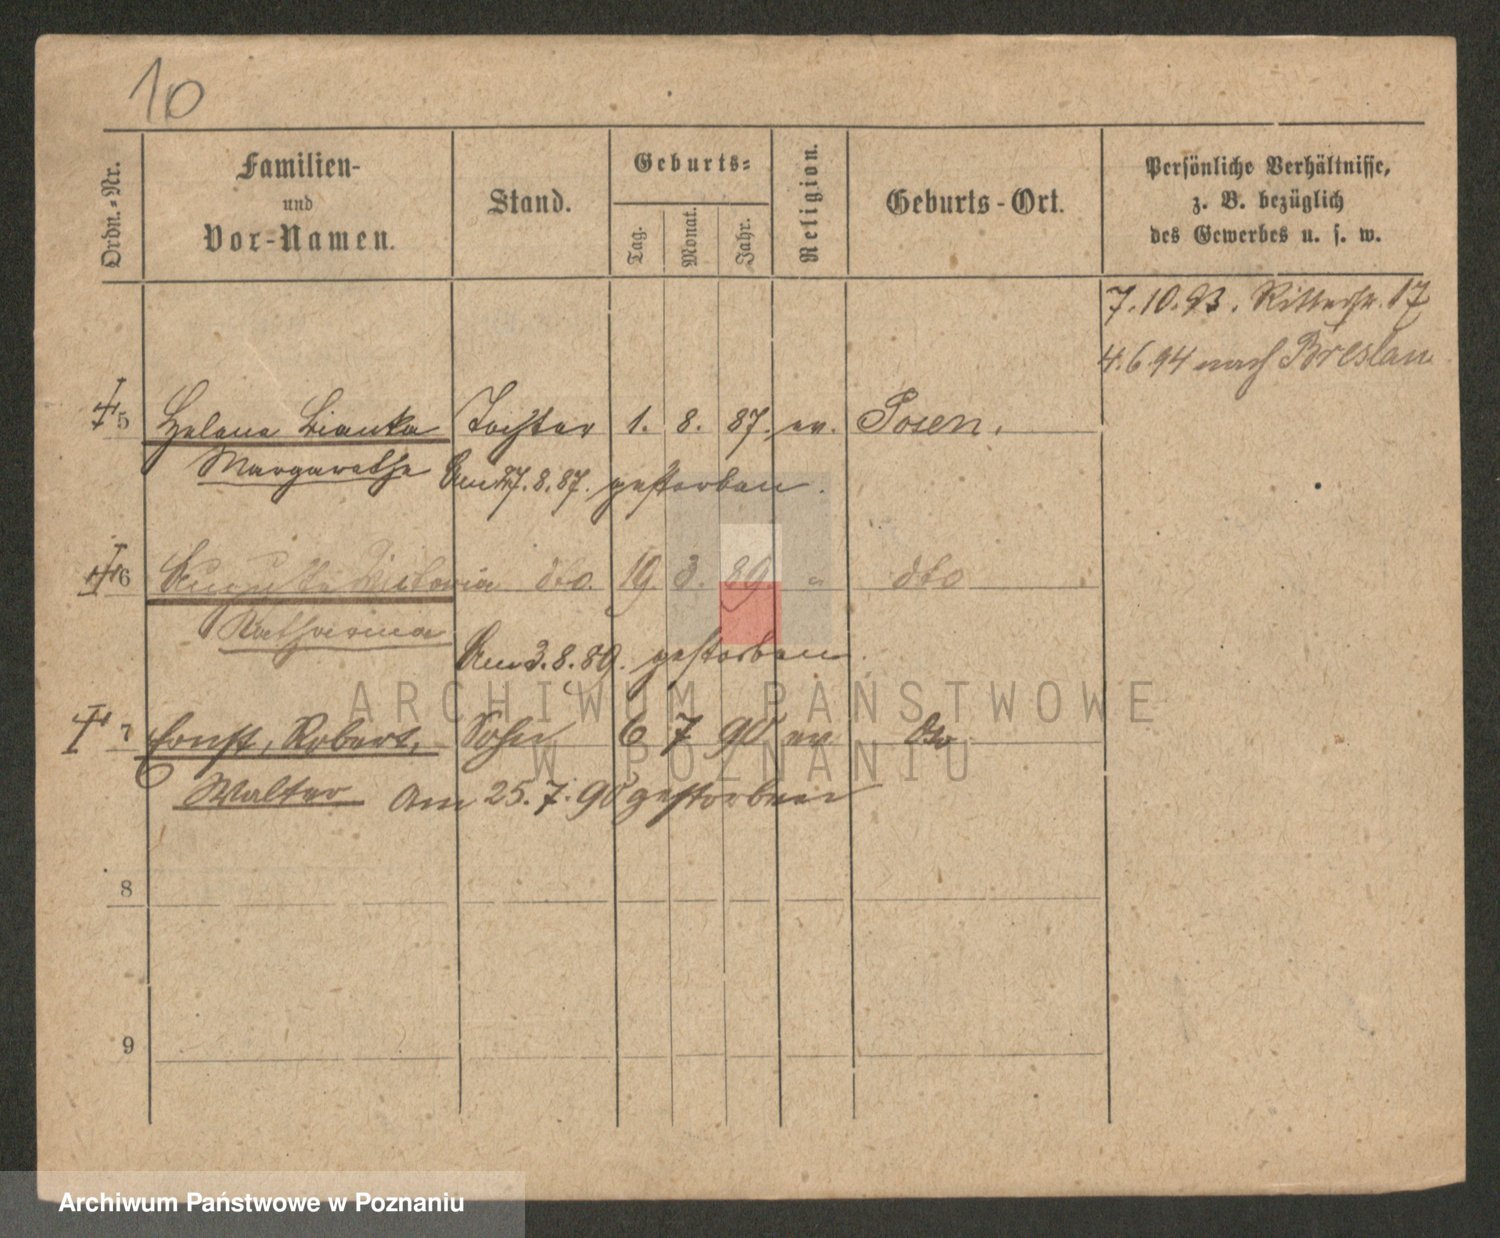 10
Ordn.-Nr.
Familien-
und
Vor-Namen.
Stand.
Geburts-
Tag.
Monat.
Jahr.
Religion.
Geburts-Ort.
Persönliche Verhältnisse,
z. B. bezüglich
des Gewerbes u. s. w.
7.10.93. Ritterstr. 17
4.6.94 nach Breslau
5 Helene Bianka Tochter 1. 8. 87. ev. Posen.
Margarethe Am 27.8.87. gestorben.
6 Auguste Victoria dto. 19. 3. 89. " dto
Katharina
Am 3.8.89. gestorben.
7 Ernst, Robert, Sohn 6 7 90 ev dto
Walter Am 25.7.90 gestorben
8
9
ARCHIWUM PAŃSTWOWE
W POZNANIU
Archiwum Państwowe w Poznaniu